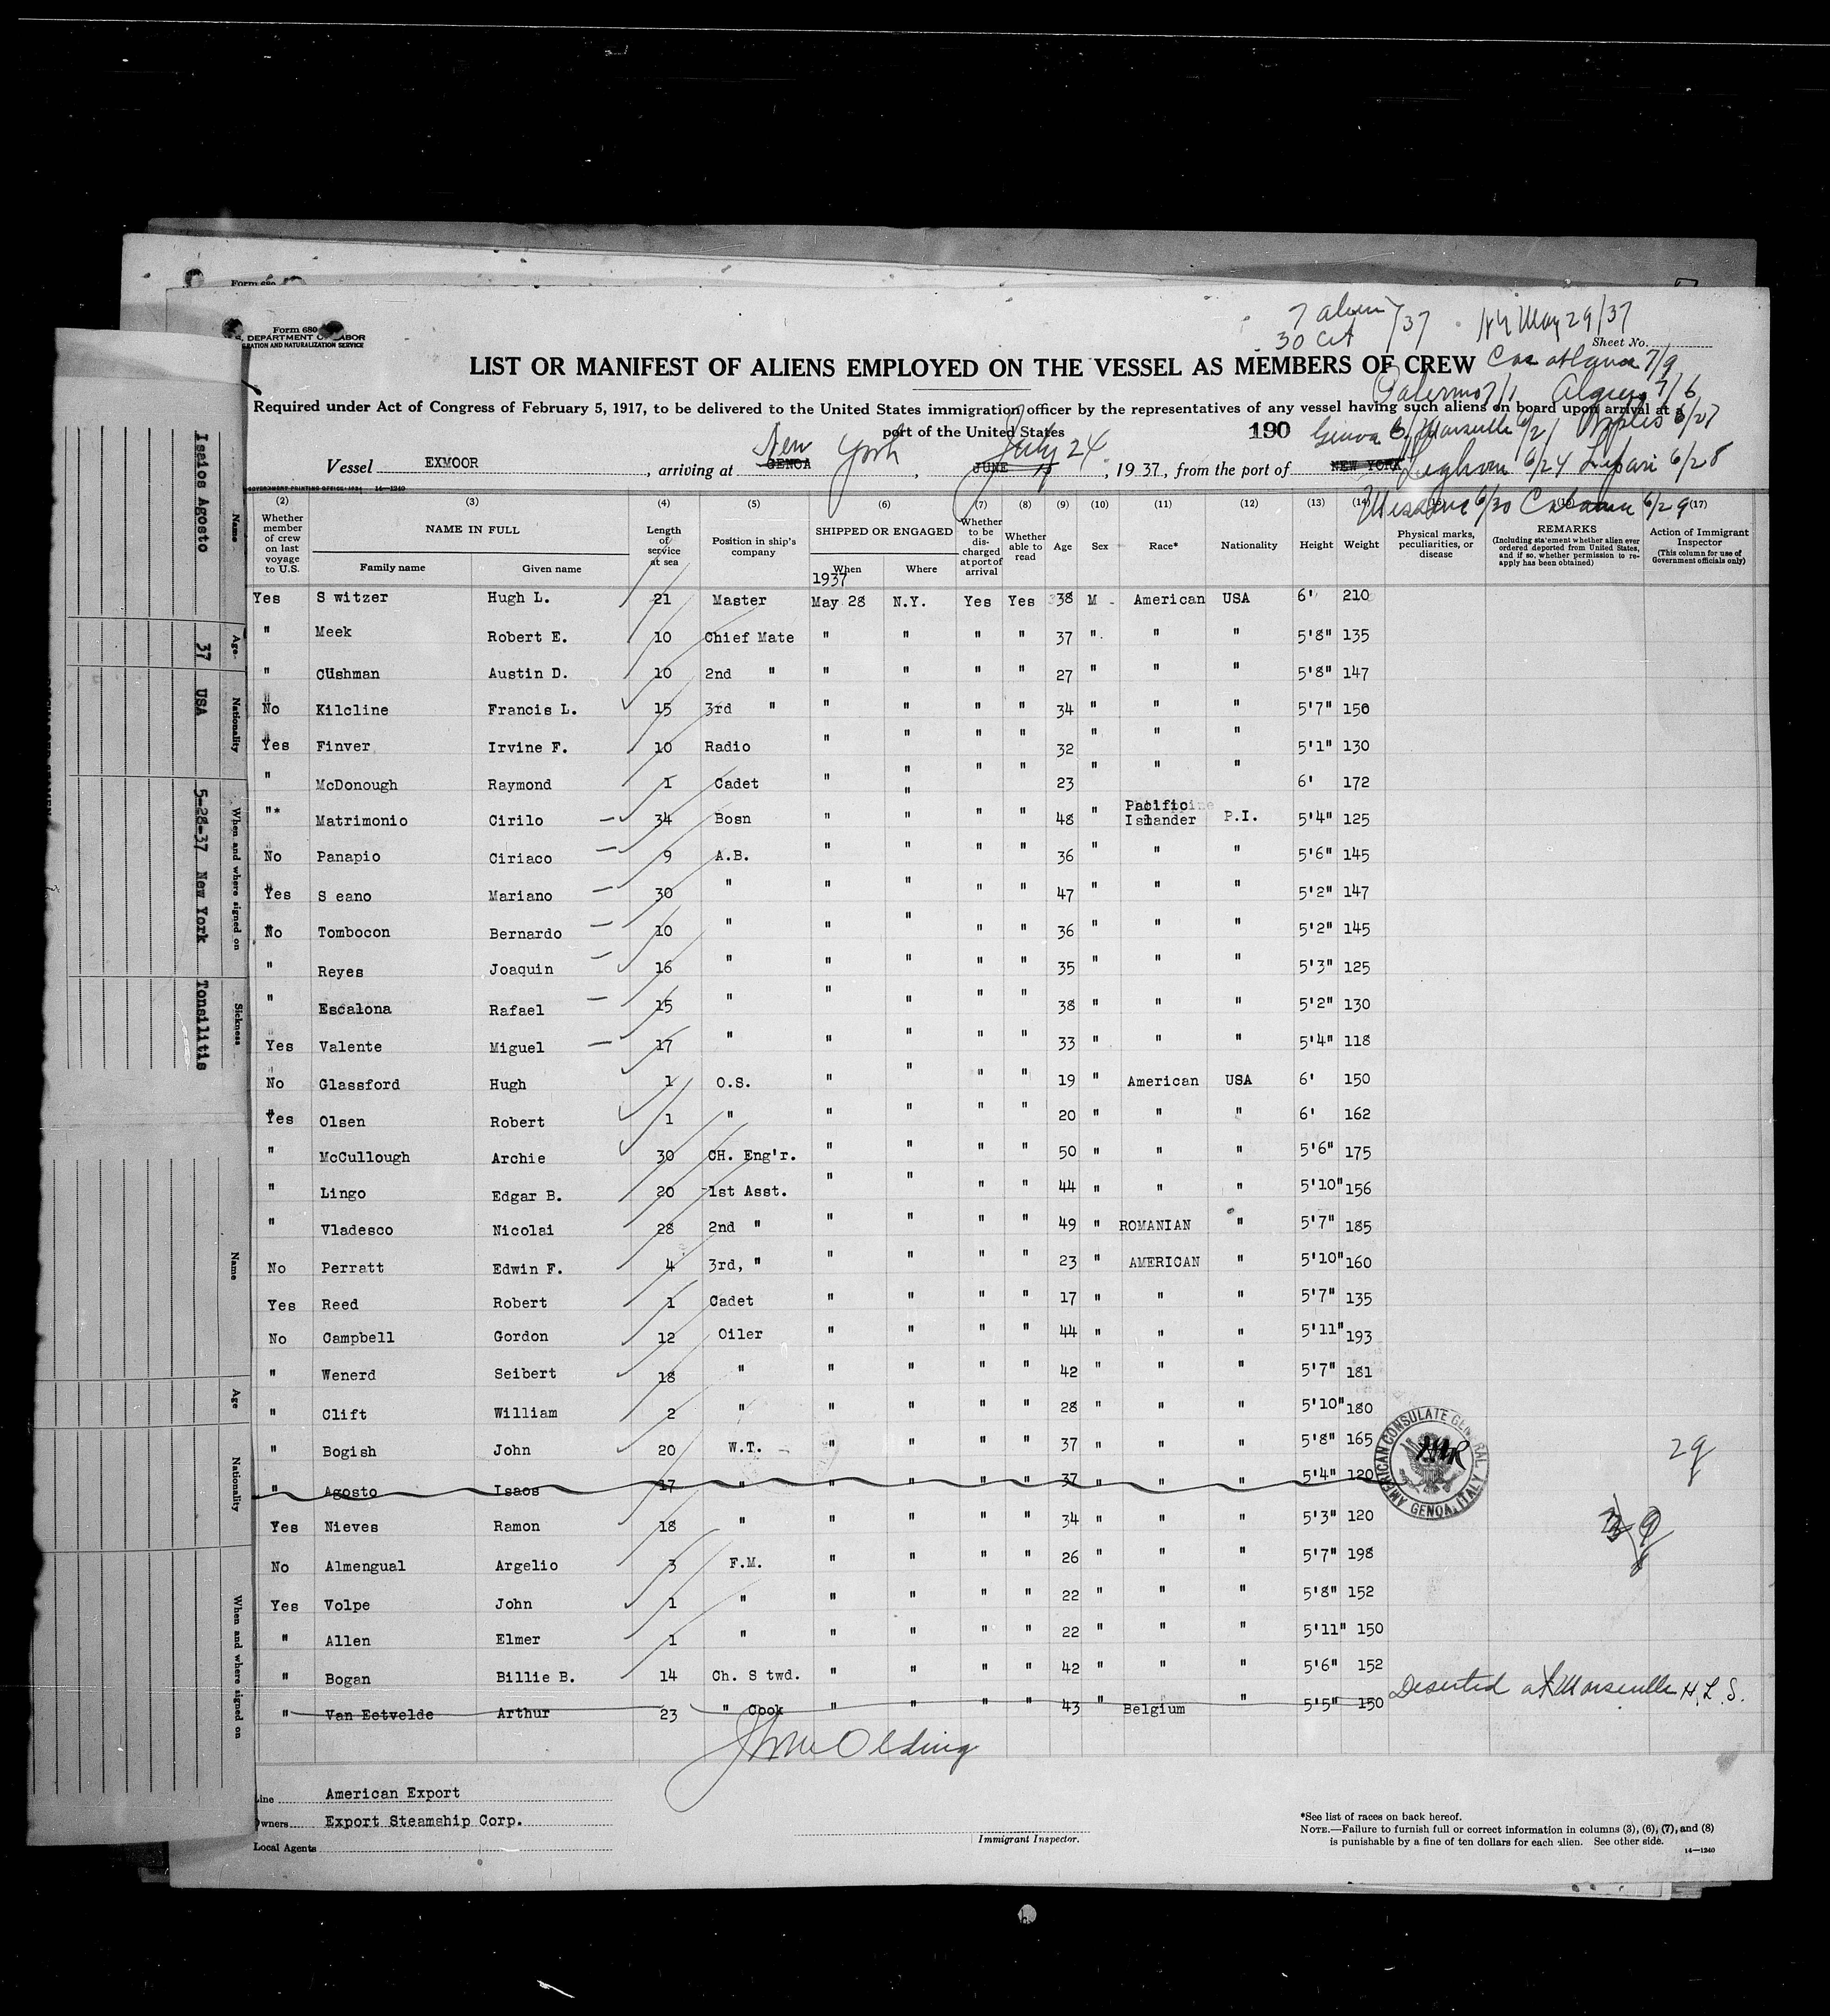 Form 680
7 alien
30 Cit
/37
NY May 29/37
U.S. DEPARTMENT OF LABOR
IMMIGRATION AND NATURALIZATION SERVICE
Sheet No.
LIST OR MANIFEST OF ALIENS EMPLOYED ON THE VESSEL AS MEMBERS OF CREW
7/9
Palermo 7/1 Algiers 7/6
Required under Act of Congress of February 5, 1917, to be delivered to the United States immigration officer by the representatives of any vessel having such aliens on board upon arrival at a
port of the United States
190
Genoa Marseille 6/21 Naples 6/27
Vessel EXMOOR, arriving at GENOA New York, JUNE July 24, 1937, from the port of NEW YORK Leghorn 6/24 Lipari 6/28
GOVERNMENT PRINTING OFFICE 14—1240
Messina 6/30 6/29
(2) (3) (4) (5) (6) (7) (8) (9) (10) (11) (12) (13) (14) (17)
Whether member of crew on last voyage to U.S.
NAME IN FULL
Family name Given name
Length of service at sea
Position in ship's company
SHIPPED OR ENGAGED
When Where
1937
Whether to be discharged at port of arrival
Whether able to read
Age Sex Race* Nationality Height Weight
Physical marks, peculiarities, or disease
REMARKS
(Including statement whether alien ever ordered deported from United States, and if so, whether permission to reapply has been obtained)
Action of Immigrant Inspector
(This column for use of Government officials only)
Yes S witzer Hugh L. 21 Master May 28 N.Y. Yes Yes 38 M American USA 6' 210
" Meek Robert E. 10 Chief Mate " " " " 37 " " " 5'8" 135
" CUshman Austin D. 10 2nd " " " " " 27 " " " 5'8" 147
No Kilcline Francis L. 15 3rd " " " " " 34 " " " 5'7" 150
Yes Finver Irvine F. 10 Radio " " " " 32 " " " 5'1" 130
" McDonough Raymond 1 Cadet " " " " 23 " " " 6' 172
"* Matrimonio Cirilo 34 Bosn " " " " 48 " Pacific Islander P.I. 5'4" 125
No Panapio Ciriaco 9 A.B. " " " " 36 " " " 5'6" 145
Yes S eano Mariano 30 " " " " " 47 " " " 5'2" 147
No Tombocon Bernardo 10 " " " " " 36 " " " 5'2" 145
" Reyes Joaquin 16 " " " " " 35 " " " 5'3" 125
" Escalona Rafael 15 " " " " " 38 " " " 5'2" 130
Yes Valente Miguel 17 " " " " " 33 " " " 5'4" 118
No Glassford Hugh 1 O.S. " " " " 19 " American USA 6' 150
Yes Olsen Robert 1 " " " " " 20 " " " 6' 162
" McCullough Archie 30 CH. Eng'r. " " " " 50 " " " 5'6" 175
" Lingo Edgar B. 20 1st Asst. " " " " 44 " " " 5'10" 156
" Vladesco Nicolai 28 2nd " " " " " 49 " ROMANIAN " 5'7" 185
No Perratt Edwin F. 4 3rd, " " " " " 23 " AMERICAN " 5'10" 160
Yes Reed Robert 1 Cadet " " " " 17 " " " 5'7" 135
No Campbell Gordon 12 Oiler " " " " 44 " " " 5'11" 193
" Wenerd Seibert 18 " " " " " 42 " " " 5'7" 181
" Clift William 2 " " " " " 28 " " " 5'10" 180
" Bogish John 20 W.T. " " " " 37 " " " 5'8" 165
" Agosto Isaos 17 " " " " " 37 " " " 5'4" 120
Yes Nieves Ramon 18 " " " " " 34 " " " 5'3" 120
No Almengual Argelio 3 F.M. " " " " 26 " " " 5'7" 198
Yes Volpe John 1 " " " " " 22 " " " 5'8" 152
" Allen Elmer 1 " " " " " 22 " " " 5'11" 150
" Bogan Billie B. 14 Ch. S twd. " " " " 42 " " " 5'6" 152
" Van Eetvelde Arthur 23 " Cook " " " " 43 " Belgium " 5'5" 150 Deserted at Marseille H.L.S.
AMERICAN CONSULATE GENERAL
GENOA, ITALY
Olding
Line American Export
Owners Export Steamship Corp.
Local Agents
Immigrant Inspector.
*See list of races on back hereof.
NOTE.—Failure to furnish full or correct information in columns (3), (6), (7), and (8)
is punishable by a fine of ten dollars for each alien. See other side.
14—1240
Name Age Nationality When and where signed on Sickness
Issios Agosto 37 USA 5-28-37 New York Tonsilitis
Name Age Nationality When and where signed on